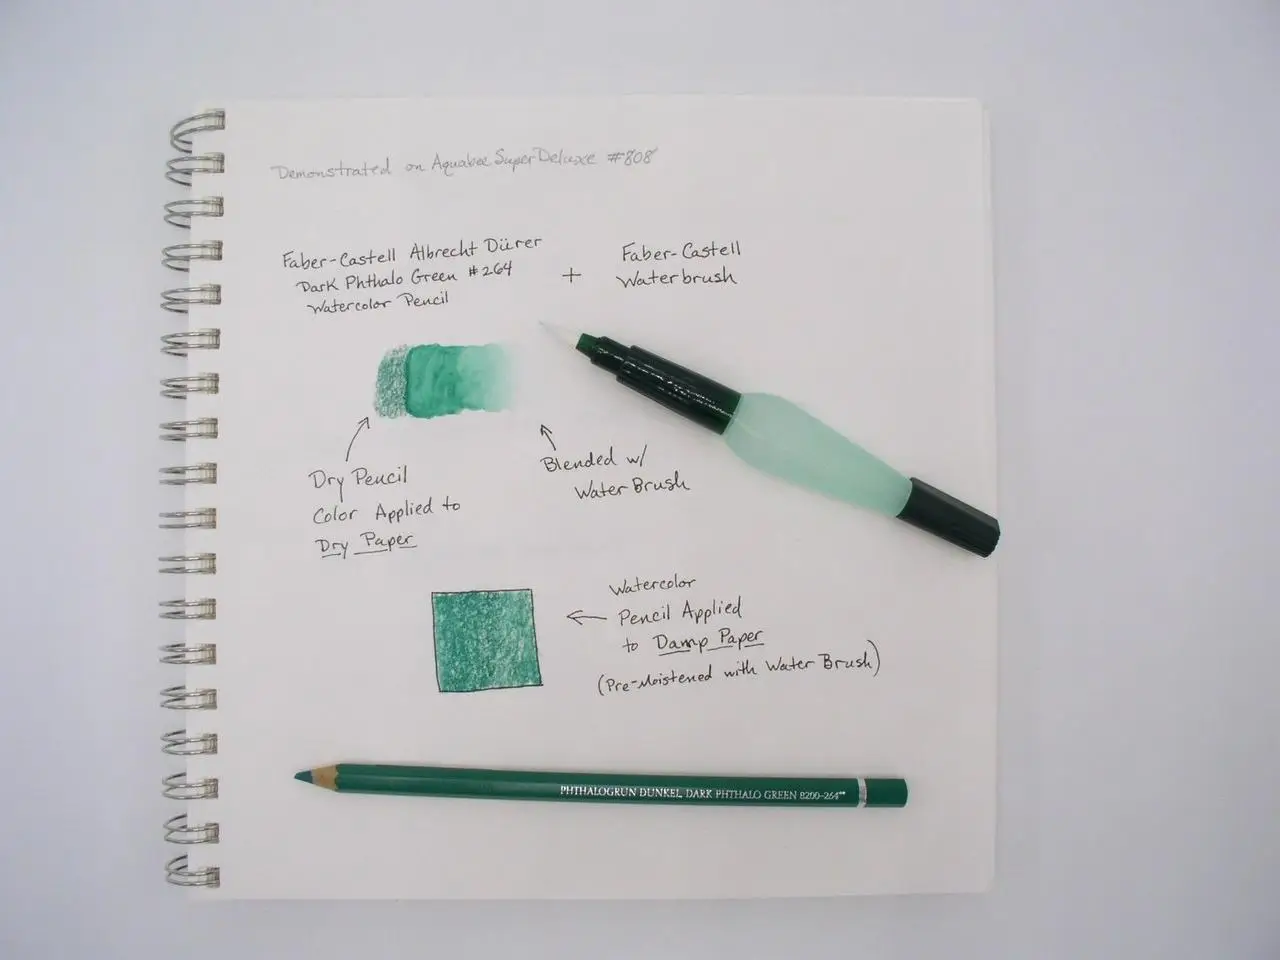 Demonstrated on Aquabee Super Deluxe #808
Faber-Castell Albrecht Dürer
Dark Phthalo Green #264
Watercolor Pencil
+
Faber-Castell
Waterbrush
Dry Pencil
Color Applied to
Dry Paper
Blended w/
Water Brush
Watercolor
Pencil Applied
to Damp Paper
(Pre-Moistened with Water Brush)
PHTHALOGRUN DUNKEL, DARK PHTHALO GREEN 8200-264**